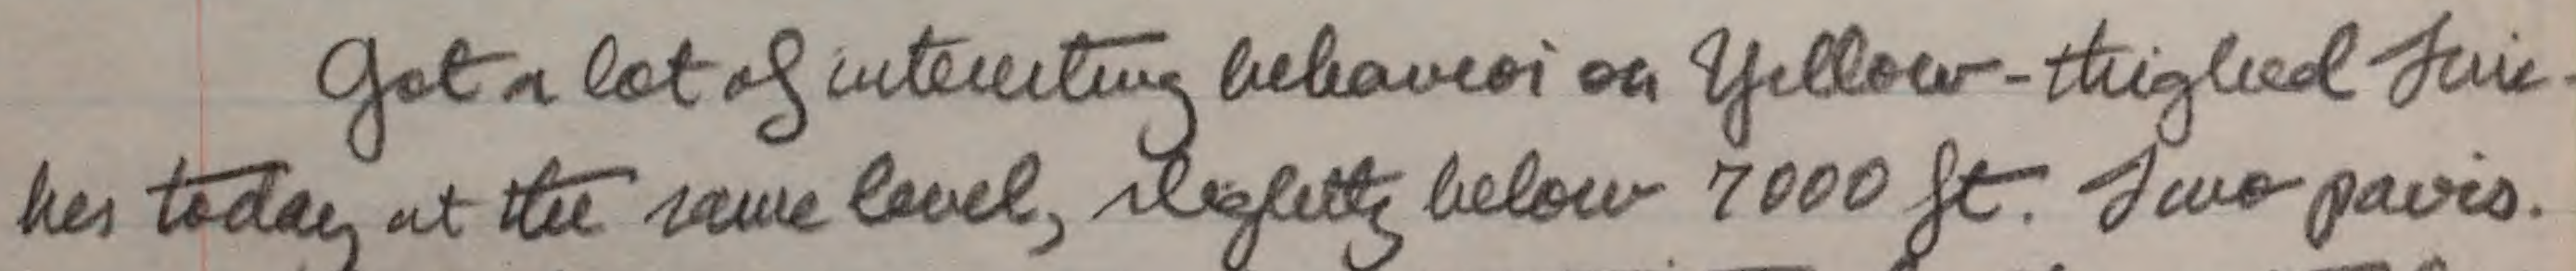 Got a lot of interesting behavior on Yellow-thighed Finc-
hes today at the same level, slightly below 7000 ft. Two pairs.